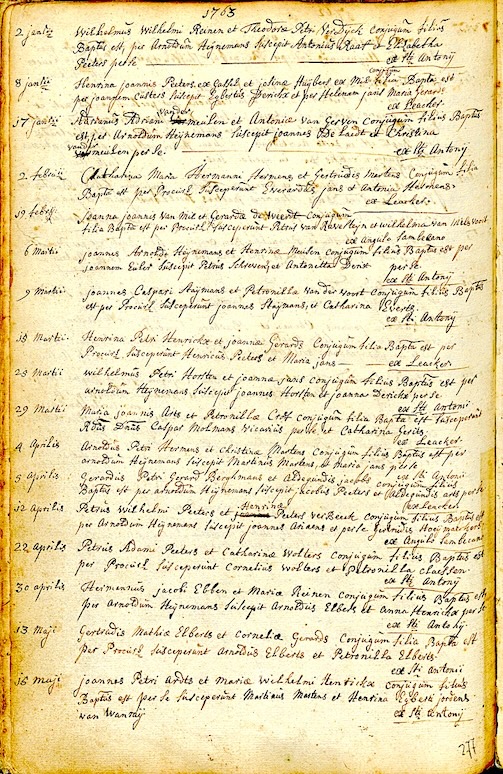 1763
2 janrii Wilhelmus Wilhelmi Reinen et Theodoræ Petri VerDyck Conjugum filius
Baptus est, per Arnoldum Heijnemans suscepit Antonius Raaf et Elisabetha
Peeters per se ex sti Antonij
8 janrii Henrina joannis Peeters ex et Huijbers ex Mill conjugum filia Baptus est
per joannem Custers suscepit Egbertus Derickx et per Helenam jans Maria Gerards
ex Leucker
17 janrii Adrianus Adriani vander meulen et Antoniæ van Gerven Conjugum filius Baptus
est per Arnoldum Heijnemans suscepit joannes De Laedt et Christina
vander meulen per se. ex sti Antonij
2 februii Catharina Maria Hermanni Hermens et Gertrudis Martens Conjugum filia
Bapta est per Procurl susceperunt Everardus jans et Antonia
ex Leucker.
19 febrii Joanna joannis van Mil et Gerardæ de Weerdt Conjugum
filia Bapta est per Procurl susceperunt Petrus van Ravesteijn et wilhelma van
ex Angulo Lambecano
6 Martii joannes Arnoldi Heijnemans et Henrinæ Meulen conjugum filius Baptus est per
joannem suscepit Petrus et Antonetta Derix per se
ex sti Antonij
9 Martii joannes Caspari Haijmans et Petronilla vander voort Conjugum filius Baptus
est per Procurl susceperunt joannes Haijmans et Catharina Everts.
ex sti Antonij
15 Martii Henrina Petri Henrickx et joannæ Gerards Conjugum filia Bapta est per
Procurl susceperunt Henricus Peeters et Maria jans ex Leucker
25 Martii wilhelmus Petri Horsten et joannæ jans conjugum filius Baptus est per
arnoldum Heijnemans suscepit joannes Horsten et joanna Derickx per se
ex sti Antonii
29 Martii Maria joannis Arts et Petronillæ conjugum filia Bapta est susceperunt
Rdus Dnus Caspar Molmans vicarius per se et Catharina Gerits
ex Leucker
4 Aprilis Arnoldus Petri Hermens et Christinæ Martens Conjugum filius Baptus est per
arnoldum Heijnemans suscepit Martinus Martens et maria jans per se
ex sti Antonii
5 aprilis Gerardus Petri Gerard Berghmans et Aldegundis jacobs conjugum filius
Baptus est per arnoldum Heijnemans suscepit jacobus Peeters et Aldegundis arts per se
ex Leucker
12 Aprilis Petrus Wilhelmi Peeters et Henrinæ Peeters verBeeck Conjugum filius Baptus est
per Arnoldum Heijnemans suscepit joannes Arians et per se Gertrudis
ex Angulo Lambecano
22 aprilis Petrus Adami Peeters et Catharinæ Wolters Conjugum filius Baptus est
per Procurl susceperunt Cornelius wolters et Petronilla claessen
ex sti Antonij
30 aprilis Hermannus jacobi Ebben et Mariæ Reinen Conjugum filius Baptus est
per Arnoldum Heijnemans suscepit Arnoldus Elbers et Anna Henrickx per se
ex sti Antonij.
13 Maji Gertrudis Mathiæ Elberts et Corneliæ Gerards Conjugum filia Bapta est
per Procurl susceperunt Arnoldus Elberts et Petronilla Elberts
ex sti Antonii
16 maji joannes Petri Ardts et Mariæ Wilhelmi Henrickx Conjugum filius
Baptus est per se susceperunt Martinus Martens et Henrina Egberti jordens
van Wanraij ex sti Antonij
277